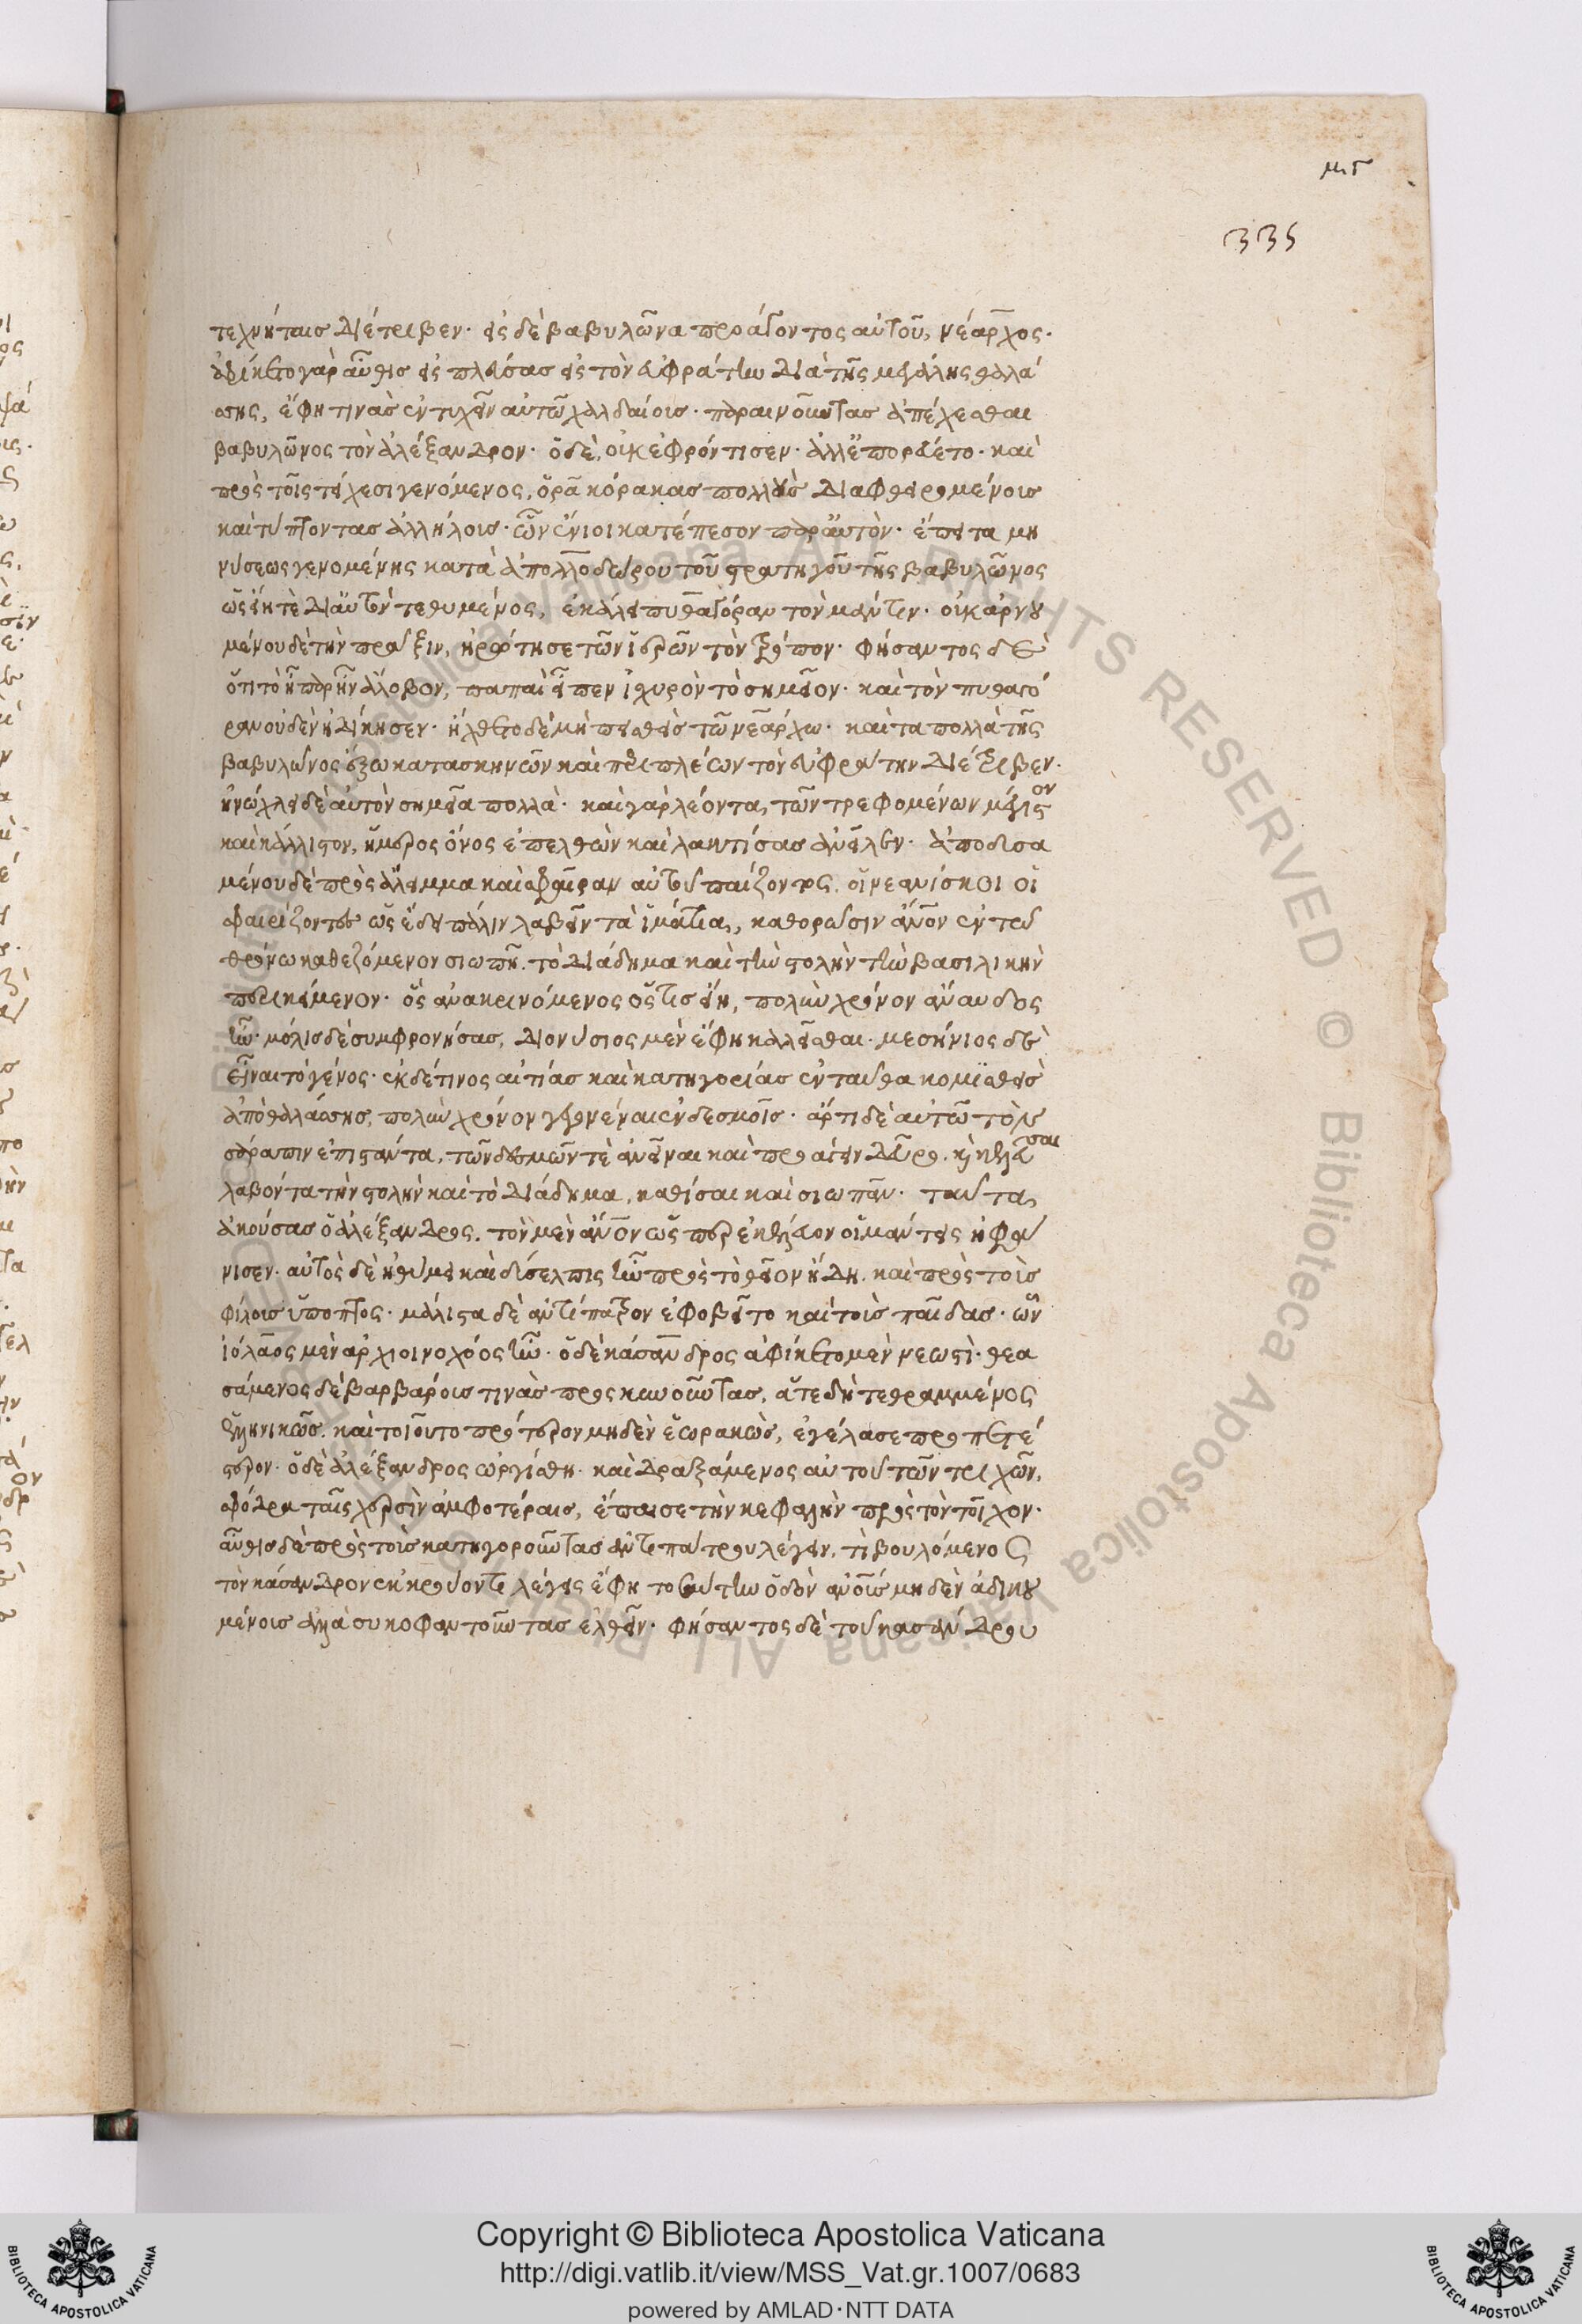 μγ
335
τεχνήταις διέτριβεν· εἰς δὲ βαβυλῶνα προάγοντος αὐτοῦ, νέαρχος·
ἀφίκετο γὰρ αὖθις εἰσπλεύσας εἰς τὸν εὐφράτην διὰ τῆς μεγάλης θαλά
σσης, ἔφη τινὰς ἐντυχεῖν αὐτῶ χαλδαίοις· παραινοῦντας ἀπέχεσθαι
βαβυλῶνος τὸν ἀλέξανδρον· ὁ δὲ, οὐκ ἐφρόντισεν· ἀλλ' ἐπορεύετο· καὶ
πρὸς τοῖς τείχεσι γενόμενος, ὁρᾶ κόρακας πολλοὺς διαφερομένους
καὶ τύπτοντας ἀλλήλους· ὧν ἔνιοι κατέπεσον παρ' αὐτὸν· ἔπειτα μη
νύσεως γενομένης κατὰ ἀπολλοδώρου τοῦ στρατηγοῦ τῆς βαβυλῶνος
ὡς εἴη τὲ δι' αὐτὸν τεθυμένος, ἐκάλει πυθαγόραν τὸν μάντιν· οὐκ ἀρνου
μένου δὲ τὴν πρᾶξιν, ἠρώτησε τῶν ἱερῶν τὸν τρόπον· φήσαντος δὲ
ὅτι τὸ ἧπαρ ἦν ἄλοβον, παπαὶ εἶπεν ἰσχυρὸν τὸ σημεῖον· καὶ τὸν πυθαγό
ραν οὐδὲν ἠδίκησεν· ἤχθετο δὲ μὴ πεισθεὶς τῶ νεάρχω· καὶ τὰ πολλὰ τῆς
βαβυλῶνος ἔξω κατασκηνῶν καὶ περιπλέων τὸν εὐφράτην διέτριβεν·
ἠνώχλει δὲ αὐτὸν σημεῖα πολλὰ· καὶ γὰρ λέοντα, τῶν τρεφομένων μέγιστον
καὶ κάλλιστον, ἥμερος ὄνος ἐπελθὼν καὶ λακτίσας ἀνεῖλεν· ἀποδυσα
μένου δὲ πρὸς ἄλειμμα καὶ σφαῖραν αὐτοῦ παίζοντος, οἱ νεανίσκοι οἱ
σφαιρίζοντες ὡς ἔδει πάλιν λαβεῖν τὰ ἱμάτια, καθορῶσιν ἄνον ἐν τῶ
θρόνω καθεζόμενον σιωπῆ, τὸ διάδημα καὶ τὴν στολὴν τὴν βασιλικὴν
περικείμενον· ὃς ἀνακρινόμενος ὅστις εἴη, πολὺν χρόνον ἄναυδος
ἦν· μόλις δὲ συμφρονήσας, διονύσιος μὲν ἔφη καλεῖσθαι· μεσήνιος δὲ
εἶναι τὸ γένος· ἐκ δέ τινος αἰτίας καὶ κατηγορίας ἐνταῦθα κομισθεὶς
ἀπὸ θαλάσσης, πολὺν χρόνον γεγονέναι ἐν δεσμοῖς· ἄρτι δὲ αὐτῶ τὸν
σάραπιν ἐπιστάντα, τῶν δεσμῶν τὲ ἀνεῖναι καὶ προαγεῖν δεῦρο, κὶ κελεῦσαι
λαβόντα τὴν στολὴν καὶ τὸ διάδημα, καθίσαι καὶ σιωπᾶν· ταῦτα
ἀκούσας ὁ ἀλέξανδρος, τὸν μὲν ἄνον ὡς περ ἐκέλευον οἱ μάντεις ἠφά
νισεν· αὐτὸς δὲ ἠθύμει καὶ δύσελπις ἦν πρὸς τὸ θεῖον ἤδη, καὶ πρὸς τοὺς
φίλους ὕποπτος· μάλιστα δὲ ἀντίπατρον ἐφοβεῖτο καὶ τοὺς παῖδας· ὧν
ἰόλαος μὲν ἀρχιοινοχόος ἦν· ὁ δὲ κάσανδρος ἀφίκετο μὲν νεωστὶ· θεα
σάμενος δὲ βαρβάρους τινὰς προσκυνοῦντας, ἅτε δὴ τεθραμμένος
ἑλληνικῶς, καὶ τοιοῦτο πρότερον μηδὲν ἑωρακὼς, ἐγέλασε προπετέ
στερον· ὁ δὲ ἀλέξανδρος ὠργίσθη· καὶ δραξάμενος αὐτοῦ τῶν τριχῶν,
σφόδρα ταῖς χερσὶν ἀμφοτέραις, ἔπαισε τὴν κεφαλὴν πρὸς τὸν τοῖχον·
αὖθις δὲ πρὸς τοὺς κατηγοροῦντας ἀντιπάτρου λέγειν, τὶ βουλόμενος
τὸν κάσανδρον ἐκκρούοντι λέγεις ἔφη τοσαύτην ὁδὸν ἀνοὺς μηδὲν ἀδικου
μένους ἀλλὰ συκοφαντοῦντας ἐλθεῖν· φήσαντος δὲ τοῦ κασάνδρου